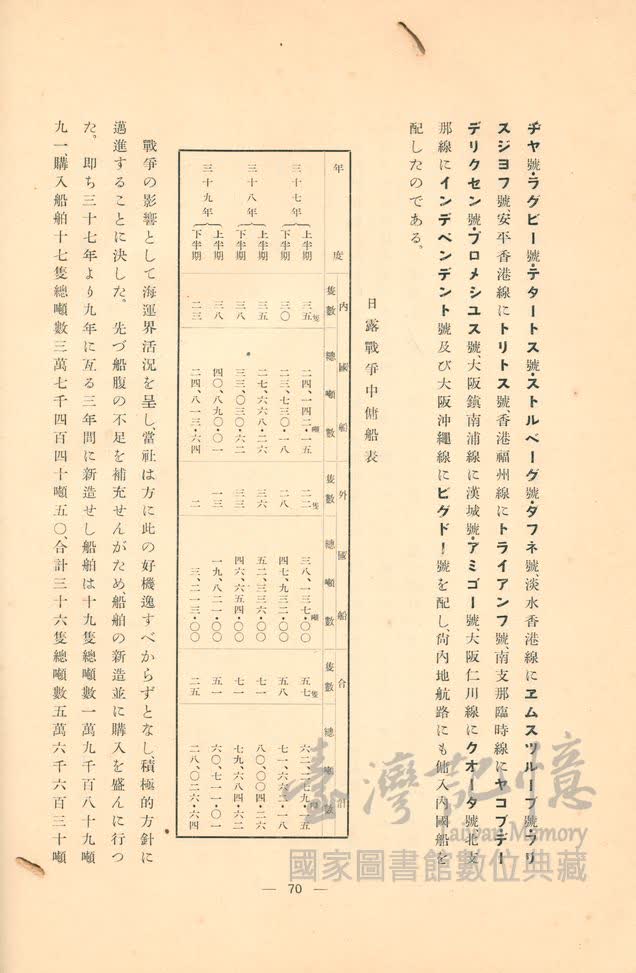 チヤ號・ラグビー號・テタートス號・ストルベーグ號・ダフネ號、淡水香港線にヱムスツルーブ號・ラリ
スジヨフ號、安平香港線にトリトス號、香港福州線にトライアンフ號、南支那臨時線にヤコブデー
デリクセン號・プロメシユス號、大阪鎮南浦線に漢城號・アミゴー號、大阪仁川線にクオータ號、北支
那線にインデペンデント號及び大阪沖繩線にビグドー號を配し、尙內地航路にも傭入內國船を
配したのである。
日露戰爭中傭船表
年度 內國船 外國船 合計
隻數 總噸數 隻數 總噸數 隻數 總噸數
三十七年 上半期 三五隻 二四、一四二・一五噸 二二隻 三八、一三七・〇〇噸 五七隻 六二、二七九・一五噸
下半期 三〇 二三、七三〇・一八 二八 四七、九三二・〇〇 五八 七一、六六二・一八
三十八年 上半期 三五 二七、六六八・二六 三六 五二、三三六・〇〇 七一 八〇、〇〇四・二六
下半期 三八 三三、〇三〇・六二 三三 四六、六五四・〇〇 七一 七九、六八四・六二
三十九年 上半期 三八 四〇、八九〇・〇一 一三 一九、八二一・〇〇 五一 六〇、七一一・〇一
下半期 二三 二四、八一三・六四 二 三、二一三・〇〇 二五 二八、〇二六・六四
戰爭の影響として海運界活況を呈し、當社は方に此の好機逸すべからずとなし、積極的方針に
邁進することに決した。先づ船腹の不足を補充せんがため、船舶の新造並に購入を盛んに行つ
た。卽ち三十七年より九年に亙る三年間に新造せし船舶は十九隻總噸數一萬九千百八十九噸
九一、購入船舶十七隻總噸數三萬七千四百四十噸五〇、合計三十六隻總噸數五萬六千六百三十噸
— 70 —
臺灣記憶
Taiwan Memory
國家圖書館數位典藏